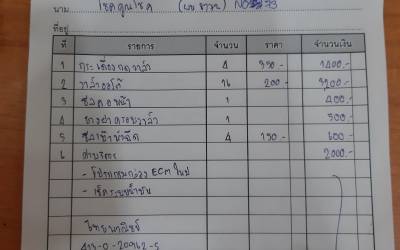 นาม โชคคูณโชค (นพ ชวาน) NO 73
ที่อยู่
ที่ รายการ จำนวน ราคา จำนวนเงิน
1 กระเดื่องกดวาล์ว 4 350.- 1400.-
2 วาล์วไอดี 16 200.- 3200.-
3 ซีลคอหน้า 1 400.-
4 ยางฝาครอบวาล์ว 1 500.-
5 ซีลเบ้าหัวฉีด 4 150.- 600.-
6 ค่าบริการ 2000.-
- โปรแกรมกล่อง ECM ใหม่
- เช็คระบบน้ำมัน
วิทยพาณิชย์
413-0-20962-5